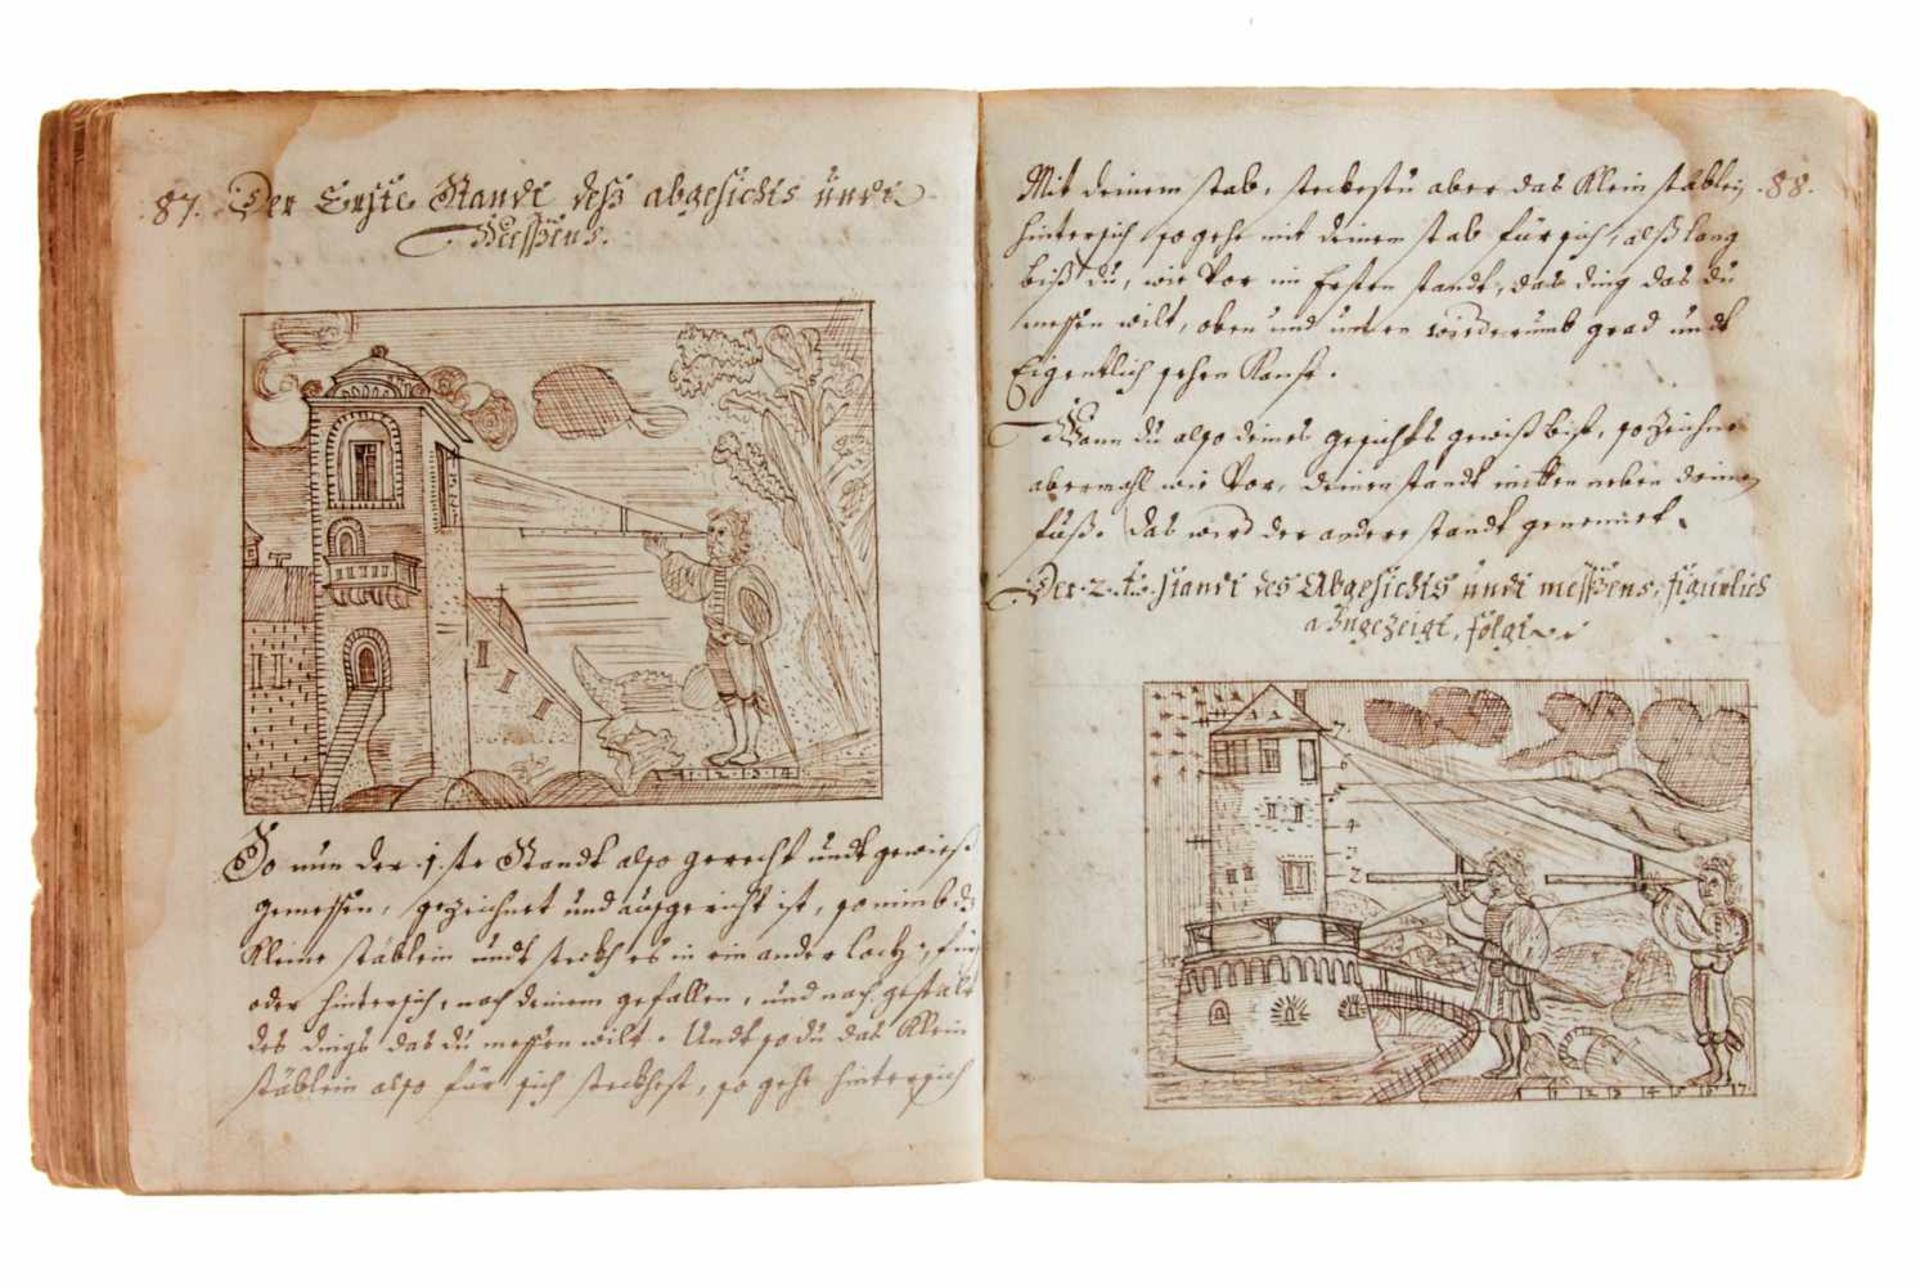 87. Der Erste Standt deß abgesichts undt
Messens.
11 12 13 14
So nun der .1. ste Standt also gerecht undt gewieß
gemessen, gezeichnet und aufgericht ist, so nimb dz
kleine stäblein undt steckh es in ein ander loch, für
oder hintersich, nach deinem gefallen, und nach gestalt
des dings das du messen wilt. Undt so du das klein
stäblein also für sich steckhest, so gehe hintersich
Mit deinem stab, steckestu aber das klein stäblein .88.
hintersich, so gehe mit deinem stab für sich, alß lang
biß du, wie vor im Ersten standt, das ding das du
messen wilt, oben und unten wiederumb grad undt
Eigentlich sehen kanst.
Wann du also deines gesichts gewiß bist, so zeichne
abermahl wie vor, deinen standt mitten neben deinen
fuß. Das wird der andere standt genennet.
Der 2. te. standt des Abgesichts undt messens, figurlich
angezeigt, folgt
7
6
5
4
3
2
11 12 13 14 15 16 17